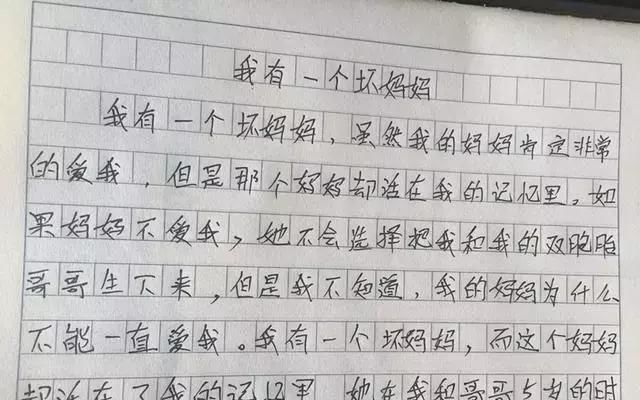 我有一个坏妈妈
我有一个坏妈妈，虽然我的妈妈肯定非常
的爱我，但是那个妈妈却活在我的记忆里。如
果妈妈不爱我，她不会选择把我和我的双胞胎
哥哥生下来，但是我不知道，我的妈妈为什么
不能一直爱我。我有一个坏妈妈，而这个妈妈
却活在了我的记忆里，她在我和哥哥5岁的时